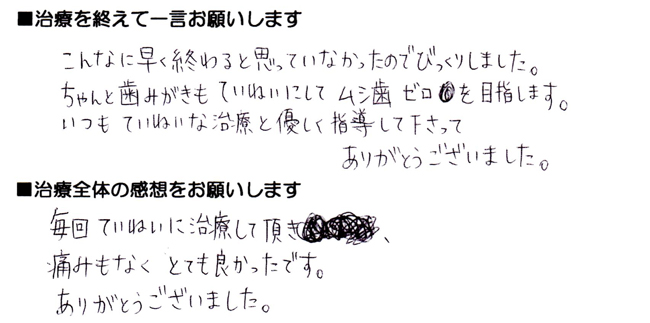 ■治療を終えて一言お願いします
こんなに早く終わると思っていなかったのでびっくりしました。
ちゃんと歯みがきもていねいにしてムシ歯ゼロを目指します。
いつもていねいな治療と優しく指導して下さって
ありがとうございました。
■治療全体の感想をお願いします
毎回ていねいに治療して頂き、
痛みもなくとても良かったです。
ありがとうございました。